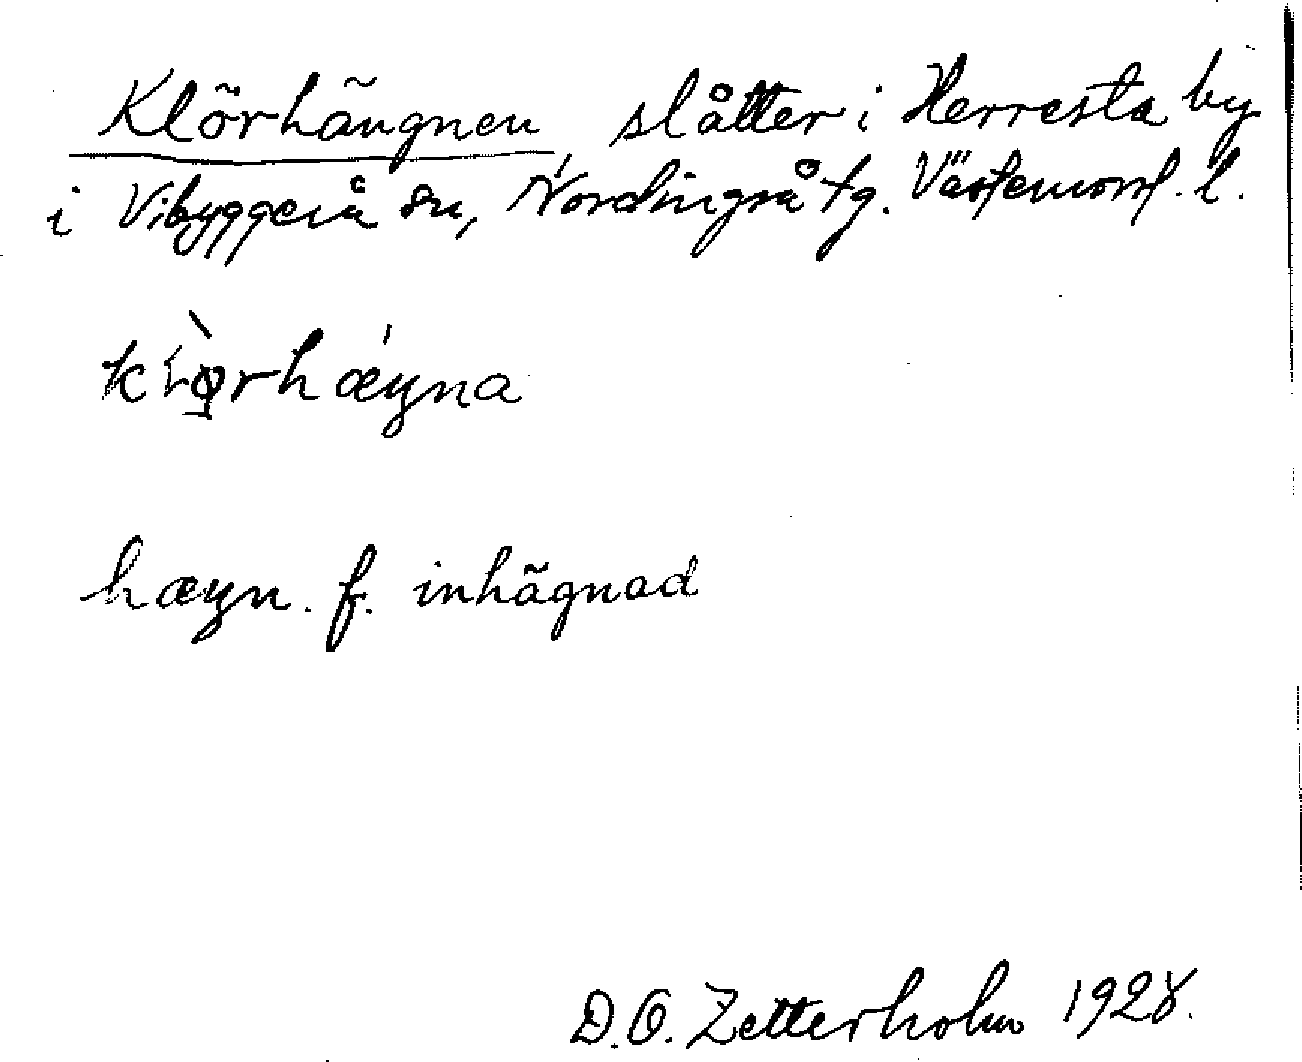 Klörhängnen, slåtter i Herresta by
i Vibyggerå sn, Nordingrå tg. Västernorrl. l.
klø̀rhæŋna
hæŋn. f. inhägnad
D.O. Zetterholm 1928.